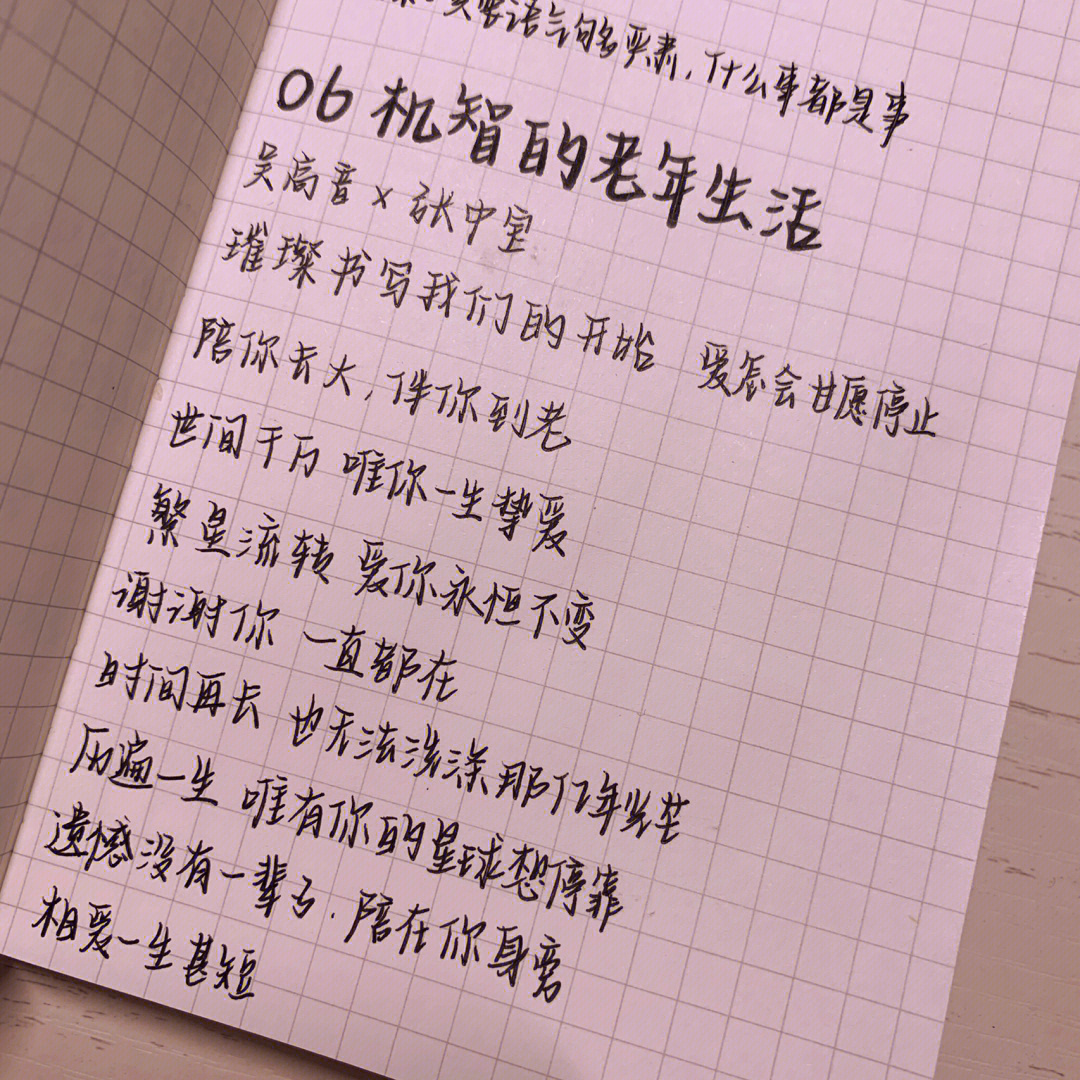 要语气够严肃,什么事都是事
06 机智的老年生活
吴高音 × 张中室
璀璨书写我们的开始 爱怎会甘愿停止
陪你去火,伴你到老
世间千万 唯你一生挚爱
繁星流转 爱你永恒不变
谢谢你 一直都在
时间再长 也无法洗涤那亿年光芒
历遍一生 唯有你的星球想停靠
遗憾没有一辈子.陪在你身旁
相爱一生甚短